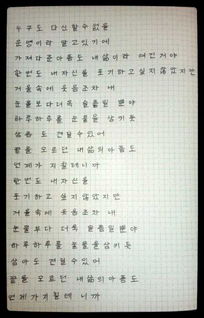 누구도 다신할수없을
운명이라 알고있기에
가져다준아픔도 내삶이라 여긴거야
한번도 내자신을 포기하고싶지않았지만
거울속에 웃음조차 내
눈물보다더욱 슬플뿐야
하루하루를 눈물을 삼키듯
삶을 도 견딜수있어
끝을 모르던 내삶의아픔도
언제가 지칠테니까
한번도 내자신을
포기하고 싶지않았지만
거울속에 웃음조차 내
눈물보다 더욱 슬플뿐야
하루하루를 눈물을삼키듯
삶아도 견딜수있어
끝을 모르던 내삶의아픔도
언제가지칠테 니까